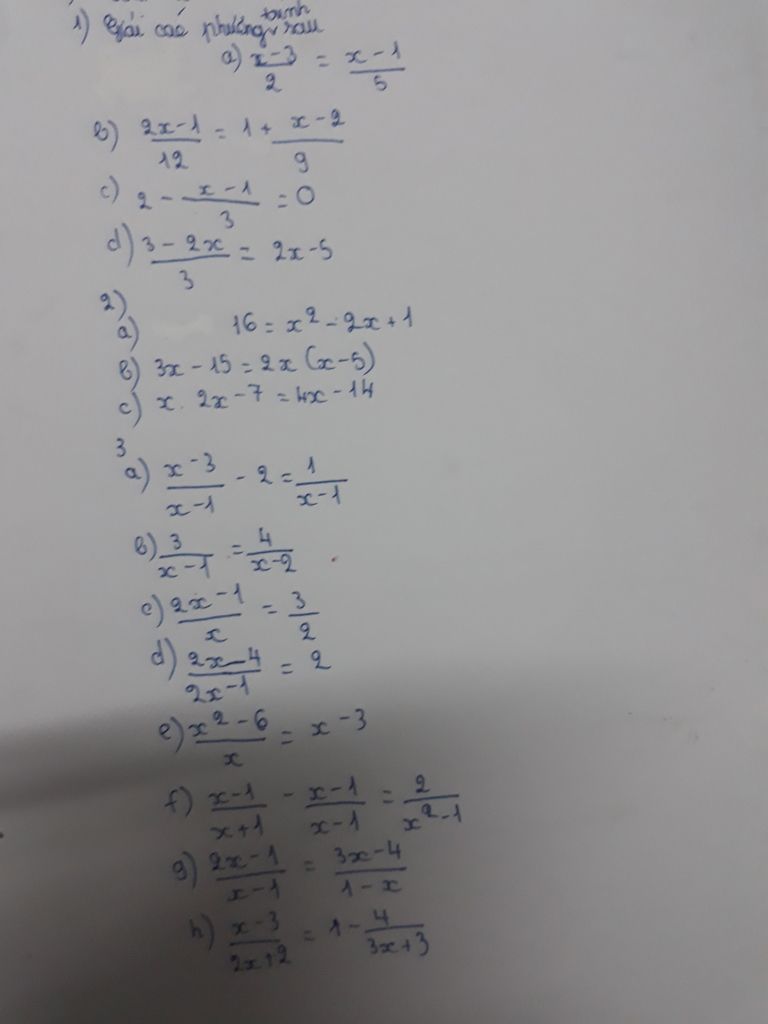 1) Giải các phương trình sau
a) x-3/2 = x-1/5
b) 2x-1/12 = 1 + x-2/9
c) 2 - x-1/3 = 0
d) 3-2x/3 = 2x-5
2)
a) 16 = x² - 2x + 1
b) 3x - 15 = 2x (x-5)
c) x. 2x - 7 = 4x - 14
3
a) x-3/x-1 - 2 = 1/x-1
b) 3/x-1 = 4/x-2
c) 2x-1/x = 3/2
d) 2x-4/2x-1 = 2
e) x²-6/x = x-3
f) x-1/x+1 - x-1/x-1 = 2/x²-1
g) 2x-1/x-1 = 3x-4/1-x
h) x-3/2x+2 = 1 - 4/3x+3